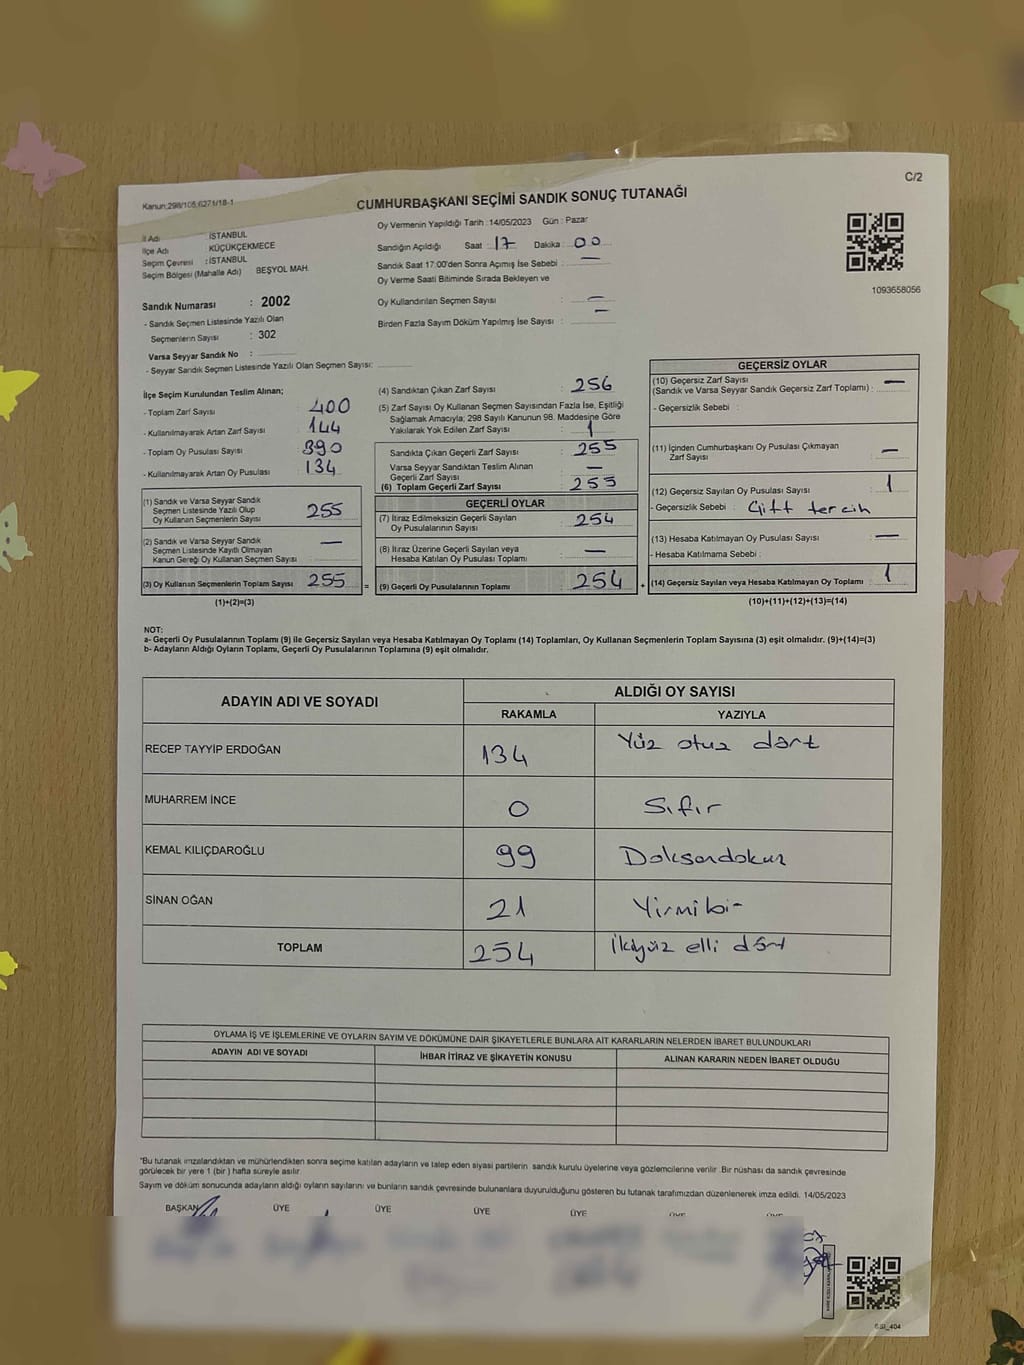 C/2
Kanun:298/105;6271/18-1
CUMHURBAŞKANI SEÇİMİ SANDIK SONUÇ TUTANAĞI
İl Adı : İSTANBUL
İlçe Adı KÜÇÜKÇEKMECE
Seçim Çevresi : İSTANBUL
Seçim Bölgesi (Mahalle Adı) BEŞYOL MAH.
Sandık Numarası : 2002
- Sandık Seçmen Listesinde Yazılı Olan
Seçmenlerin Sayısı : 302
Varsa Seyyar Sandık No :
- Seyyar Sandık Seçmen Listesinde Yazılı Olan Seçmen Sayısı:
Oy Vermenin Yapıldığı Tarih :14/05/2023 Gün : Pazar
Sandığın Açıldığı Saat : 17 Dakika : 00
Sandık Saat 17:00'den Sonra Açımış İse Sebebi : —
Oy Verme Saati Bitiminde Sırada Bekleyen ve
Oy Kullandırılan Seçmen Sayısı : —
Birden Fazla Sayım Döküm Yapılmış İse Sayısı : —
1093658056
İlçe Seçim Kurulundan Teslim Alınan;
- Toplam Zarf Sayısı : 400
- Kullanılmayarak Artan Zarf Sayısı : 144
- Toplam Oy Pusulası Sayısı : 390
- Kullanılmayarak Artan Oy Pusulası : 134
(1) Sandık ve Varsa Seyyar Sandık
Seçmen Listesinde Yazılı Olup
Oy Kullanan Seçmenlerin Sayısı : 255
(2) Sandık ve Varsa Seyyar Sandık
Seçmen Listesinde Kayıtlı Olmayan
Kanun Gereği Oy Kullanan Seçmen Sayısı : —
(3) Oy Kullanan Seçmenlerin Toplam Sayısı : 255 =
(1)+(2)=(3)
(4) Sandıktan Çıkan Zarf Sayısı : 256
(5) Zarf Sayısı Oy Kullanan Seçmen Sayısından Fazla İse, Eşitliği
Sağlamak Amacıyla; 298 Sayılı Kanunun 98. Maddesine Göre
Yakılarak Yok Edilen Zarf Sayısı : 1
Sandıkta Çıkan Geçerli Zarf Sayısı : 255
Varsa Seyyar Sandıktan Teslim Alınan
Geçerli Zarf Sayısı : —
(6) Toplam Geçerli Zarf Sayısı : 255
GEÇERLİ OYLAR
(7) İtiraz Edilmeksizin Geçerli Sayılan
Oy Pusulalarının Sayısı : 254
(8) İtiraz Üzerine Geçerli Sayılan veya
Hesaba Katılan Oy Pusulası Toplamı : —
(9) Geçerli Oy Pusulalarının Toplamı : 254 +
GEÇERSİZ OYLAR
(10) Geçersiz Zarf Sayısı
(Sandık ve Varsa Seyyar Sandık Geçersiz Zarf Toplamı) : —
- Geçersizlik Sebebi :
(11) İçinden Cumhurbaşkanı Oy Pusulası Çıkmayan
Zarf Sayısı : —
(12) Geçersiz Sayılan Oy Pusulası Sayısı : 1
- Geçersizlik Sebebi : Çift tercih
(13) Hesaba Katılmayan Oy Pusulası Sayısı : —
- Hesaba Katılmama Sebebi :
(14) Geçersiz Sayılan veya Hesaba Katılmayan Oy Toplamı : 1
(10)+(11)+(12)+(13)=(14)
NOT:
a- Geçerli Oy Pusulalarının Toplamı (9) ile Geçersiz Sayılan veya Hesaba Katılmayan Oy Toplamı (14) Toplamları, Oy Kullanan Seçmenlerin Toplam Sayısına (3) eşit olmalıdır. (9)+(14)=(3)
b- Adayların Aldığı Oyların Toplamı, Geçerli Oy Pusulalarının Toplamına (9) eşit olmalıdır.
ADAYIN ADI VE SOYADI ALDIĞI OY SAYISI
RAKAMLA YAZIYLA
RECEP TAYYİP ERDOĞAN 134 Yüz otuz dört
MUHARREM İNCE 0 Sıfır
KEMAL KILIÇDAROĞLU 99 Doksandokuz
SİNAN OĞAN 21 Yirmibir
TOPLAM 254 İkiyüz elli dört
OYLAMA İŞ VE İŞLEMLERİNE VE OYLARIN SAYIM VE DÖKÜMÜNE DAİR ŞİKAYETLERLE BUNLARA AİT KARARLARIN NELERDEN İBARET BULUNDUKLARI
ADAYIN ADI VE SOYADI İHBAR İTİRAZ VE ŞİKAYETİN KONUSU ALINAN KARARIN NEDEN İBARET OLDUĞU
*Bu tutanak imzalandıktan ve mühürlendikten sonra seçime katılan adayların ve talep eden siyasi partilerin sandık kurulu üyelerine veya gözlemcilerine verilir. Bir nüshası da sandık çevresinde
görülecek bir yere 1 (bir) hafta süreyle asılır.
Sayım ve döküm sonucunda adayların aldığı oyların sayılarını ve bunların sandık çevresinde bulunanlara duyurulduğunu gösteren bu tutanak tarafımızdan düzenlenerek imza edildi. 14/05/2023
BAŞKAN ÜYE ÜYE ÜYE ÜYE ÜYE ÜYE